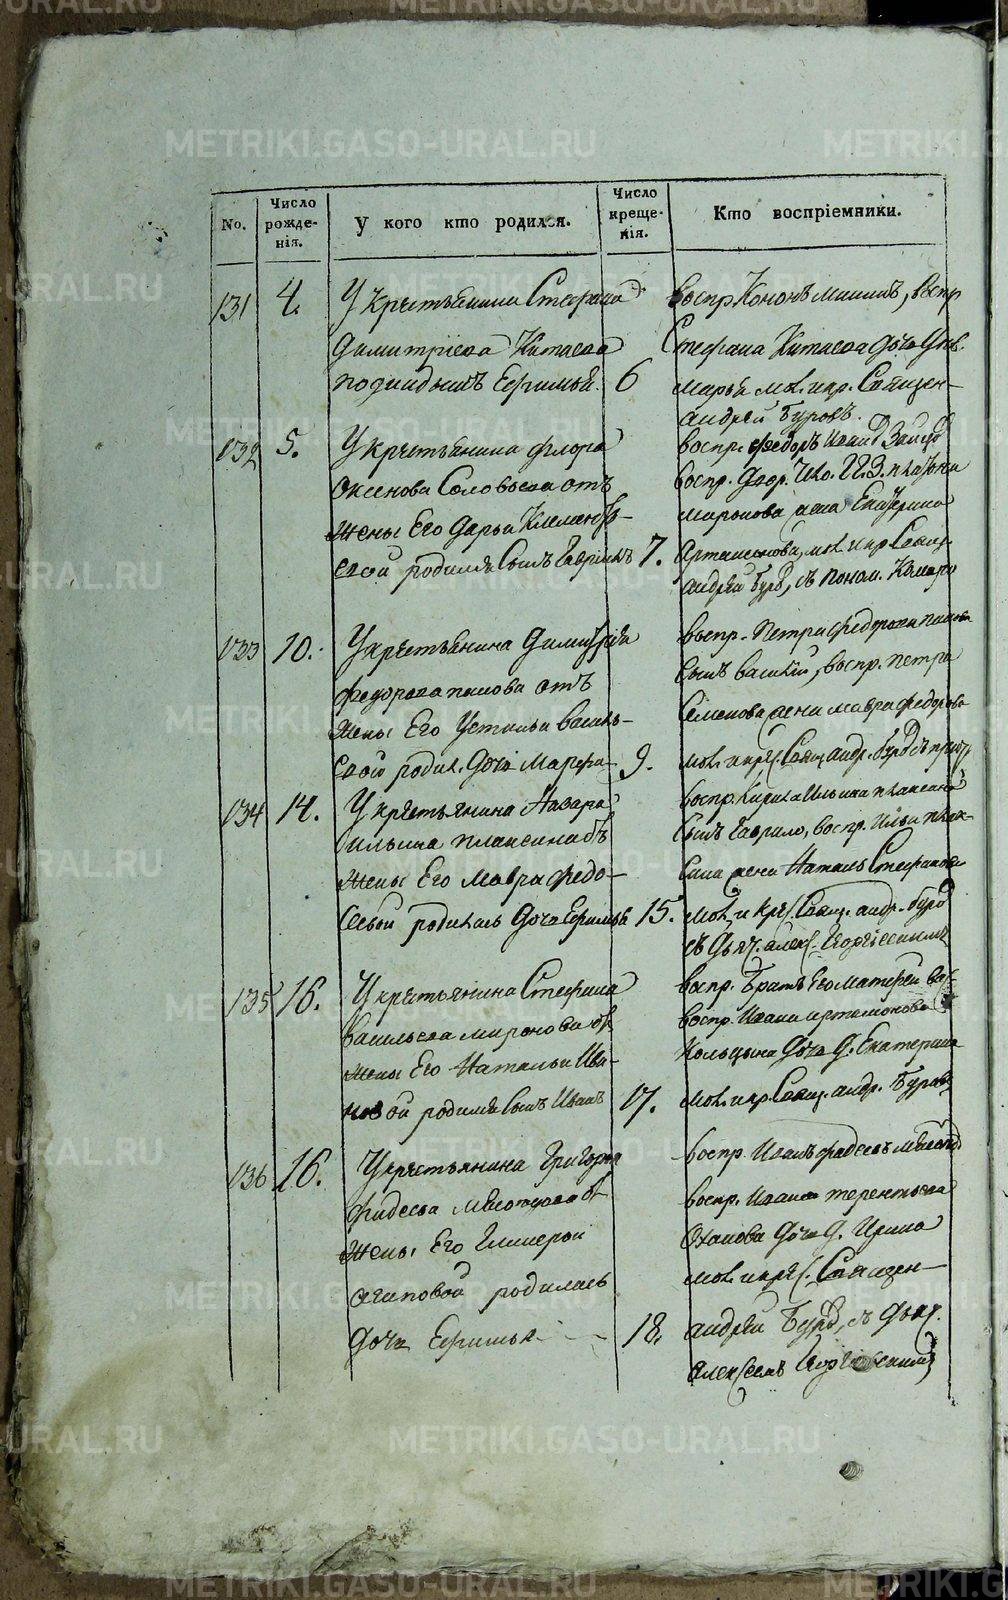 No.
Число рожде-нія.
У кого кто родился.
Число креще-нія.
Кто воспріемники.
131
4.
У крестьянина Стефана
Димитріева Китаева
подкидышъ Ефимья
6
воспр. Кононъ воспр
Стефана Китаева дочь
Марья мол. и кр. Священ-
Андрей Буровъ.
132
5.
У крестьянина Флора
Оксенова Соловьева отъ
жены Его Дарьи Климентье-
вой родился Сынъ Гаврилъ
7.
воспр. Федоръ
воспр. двор.
Миронова жена Екатерина
Артамонова, мол. и кр. Свящ.
Андрей Буровъ, съ поном.
133
10.
У крестьянина Димитрія
Федорова Попова отъ
жены Его Устиньи Василь-
евой родил. дочь Марфа
9.
воспр. Петра Федорова Попова
Сынъ Василій, воспр. Петра
Семенова жена Мавра Федорова
мол. и крес. Свящ. Андр. Буровъ съ прич.
134
14.
У крестьянина Назара
Ильина Плаксина отъ
жены Его Мавры Федо-
сеевой родилась дочь Ефимья
15.
воспр. Кирила Ильина Плаксина
Сынъ Гаврило, воспр. Ильи Плак-
сина жена Наталья Стефанова
мол. и крес. Свящ. Андр. Буровъ
съ дьяч. Алекс. Георгіевскимъ
135
16.
У крестьянина Стефана
Васильева Миронова отъ
жены Его Натальи Ива-
новой родился Сынъ Иванъ
17.
воспр. Братъ Его Матфей Вас.
воспр. Ивана Артамонова
Кольцына дочь д. Екатерина
мол. и кр. Свящ. Андр. Буровъ
136
16.
У крестьянина Григорья
Фадеева отъ
жены Его Гликерьи
Агаповой родилась
дочь Ефимья
18.
воспр. Иванъ Фадеевъ
воспр. Ивана Терентьева
дочь д. Ирина
мол. и крес. Священ-
Андрей Буровъ, съ дьяч.
Алексеемъ Георгіевскимъ
METRIKI.GASO-URAL.RU